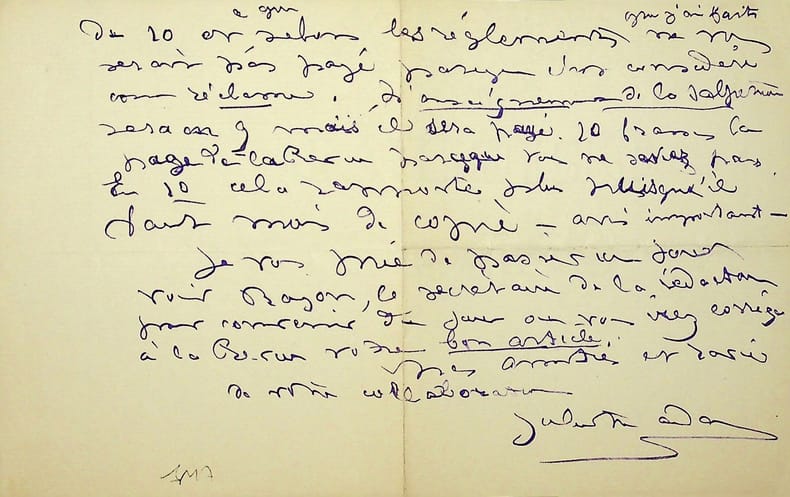 a que que j'ai faits
De 10 or selon les réglements ne vous
serait pas payé parceque considéré
com réclame. L'enseignement de la
sera en 9 mais il sera payé. 20 francs la
page à la Revue parceque vous ne savez pas.
En 10 cela rapporte plus puisqu'il
faut mois de copie – avis important –
Je vous prie de passer un jour
voir, le secrétaire de la rédaction
pour convenir du jour ou vous irez corriger
à la Revue votre bon article.
amitiés et
de votre collaboration
Juliette Adam